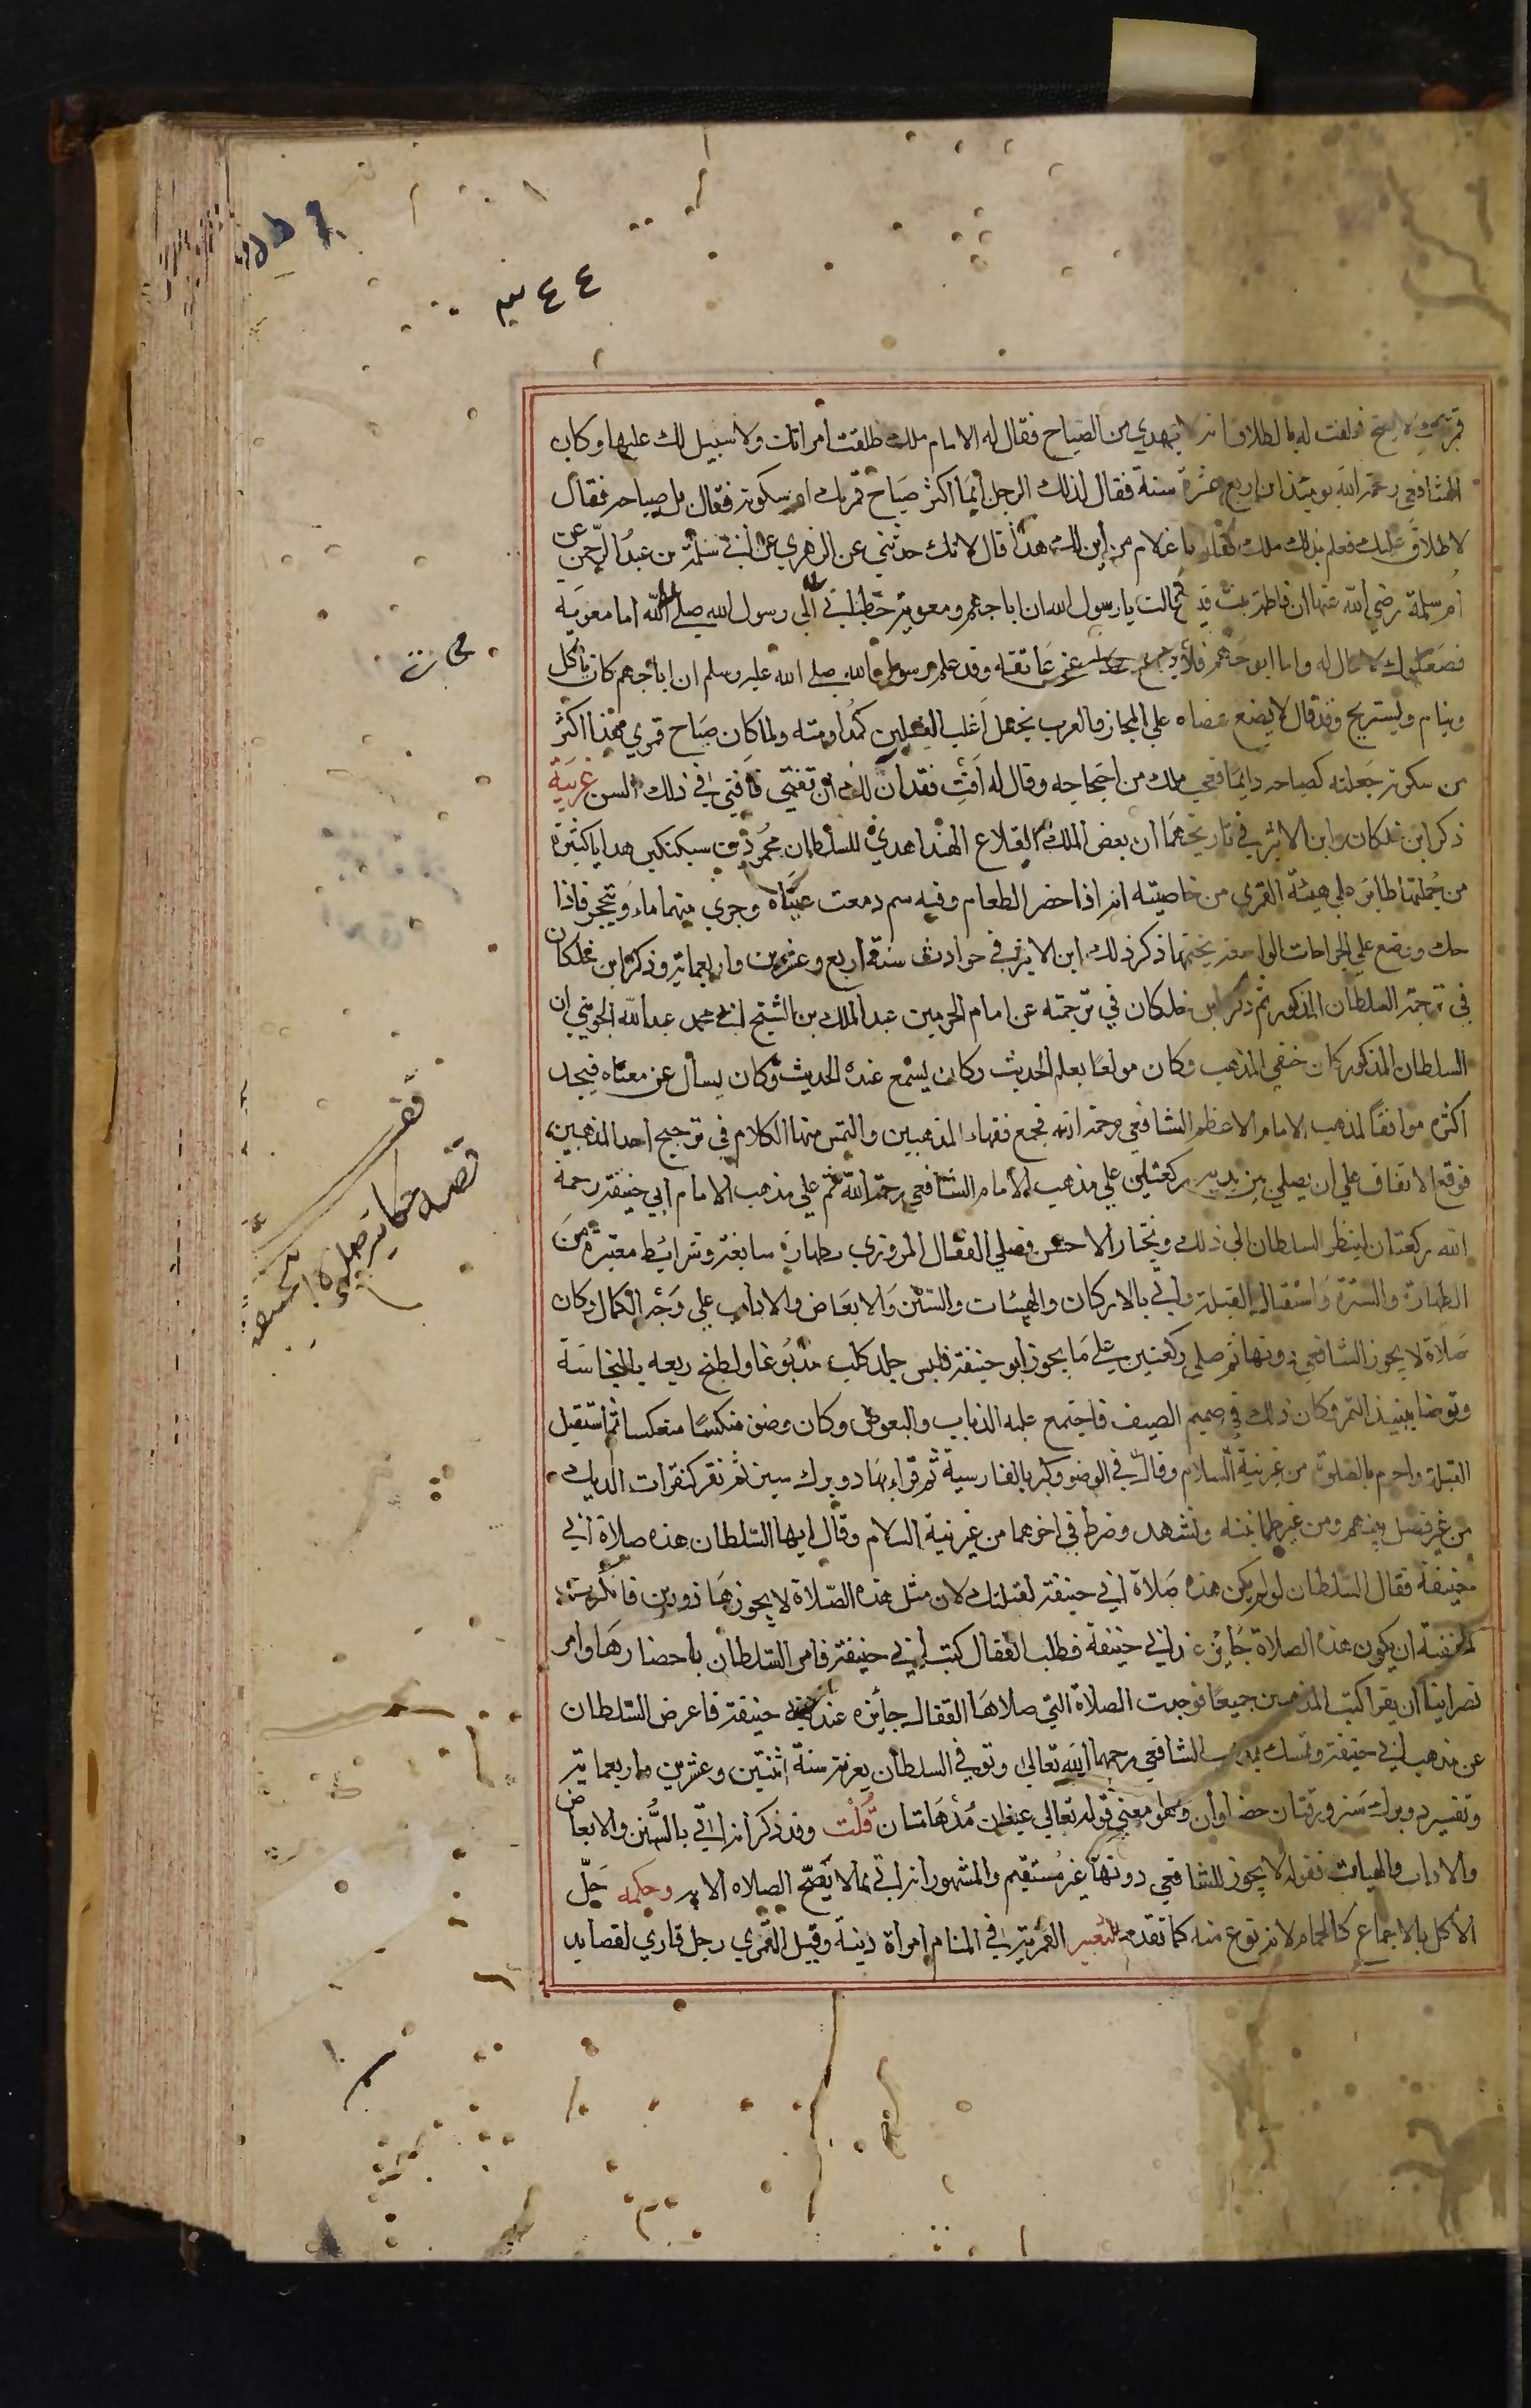 ٤٤
قمريك لا يصيح فحلفت له بالطلاق انه لا يهدي من الصياح فقال له الامام ملك طلقت امراتك ولا سبيل لك عليها وكان
الشافعي رحمه الله يومئذ ابن اربع عشرة سنة فقال لذلك الرجل أيما اكثر صياح قمريك ام سكوته فقال بل صياحه فقال
لا طلاق عليك فعلم بذلك ملك فقال يا غلام من أين لك هذا قال لانك حدثتني عن الزهري عن ابي سلمة بن عبد الرحمن عن
ام سلمة رضي الله عنها ان فاطمة بنت قيس قالت يا رسول الله ان ابا جهم ومعوية خطباني رسول الله صلي الله اما معوية
فصعلوك لا مال له واما ابو جهم فلا يضع عصاه عن عاتقه وقد علم رسول الله صلي الله عليه وسلم ان ابا جهم كان ياكل
وينام ويستريح وقد قال لا يضع عصاه علي المجاز والعرب يجعل أغلب الفعلين كمداومته ولما كان صياح قمري هذا اكثر
من سكوته جعلته كصياحه دايما فعجب ملك من احتجاجه وقال له أفت فقد آن لك ان تفتي فافتي في ذلك السن غريبة
ذكر ابن خلكان وابن الاثير في تاريخهما ان بعض الملك القلاع الهند اهدي للسلطان محمود بن سبكتكين هدايا كثيرة
من جملتها طاير علي هيئة القمري من خاصيته انه اذا حضر الطعام وفيه سم دمعت عيناه وجري منهما ماء وتحجر فاذا
حك ووضع علي الجراحات الواسعة يختمها ذكر ذلك ابن الاثير في حوادث سنة اربع وعشرين واربعماية وذكره ابن خلكان
في ترجمة السلطان المذكور ثم ذكر ابن خلكان في ترجمته عن امام الحرمين عبد الملك بن الشيخ ابي محمد عبد الله الجويني ان
السلطان المذكور كان حنفي المذهب وكان مولعًا بعلم الحديث وكان يسمع عنده الحديث وكان يسأل عن معناه فيجد
اكثره موافقًا لمذهب الامام الاعظم الشافعي رحمه الله فجمع فقهاء المذهبين والتمس منهما الكلام في ترجيح احد المذهبين
فوقع الاتفاق علي ان يصلي بين يديه ركعتين علي مذهب الأمام الشافعي رحمه الله ثم علي مذهب الامام ابي حنيفة رحمه
الله ركعتان لينظر السلطان الي ذلك ويختار الاحسن فصلي القفال المروزي بطهارة سابغة وشرايط معتبرة من
الطهارة والسترة واستقبال القبلة واتي بالاركان والهيئات والسنن والابعاض والاداب علي وجه الكمال وكان
صلاة لا يجوز الشافعي دونها ثم صلي ركعتين علي ما يجوز ابو حنيفة فلبس جلد كلب مدبوغا ولطخ ربعه بالنجاسة
وتوضا بنبيذ التمر وكان ذلك في صميم الصيف فاجتمع عليه الذباب والبعوض وكان وضوه منكسًا منعكسا ثم استقبل
القبلة واحرم بالصلوة من غير نية السلام وقال في الوضو وكبر بالفارسية ثم قراء بها دو برك سبز ثم نقر كنقرات الديك
من غير فصل بينهم ومن غير طمانينه وتشهد وضرط في اخرهما من غير نية السلام وقال ايها السلطان هذه صلاة ابي
حنيفة فقال السلطان لو لم يكن هذه صلاة ابي حنيفة لقتلتك لان مثل هذه الصلاة لا يجوزها ذو دين فانكرت
الحنفية ان يكون هذه الصلاة جايزة عند ابي حنيفة فطلب القفال كتب ابي حنيفة فامر السلطان باحضارها وامر
نصرانيا ان يقرا كتب المذهبين جميعًا فوجدت الصلاة التي صلاها القفال جائزه عند ابي حنيفة فاعرض السلطان
عن مذهب ابي حنيفة وتمسك بمذهب الشافعي رحمهما الله تعالي وتوفي السلطان بغزنة سنة اثنتين وعشرين واربعماية
وتفسير دو برك سبز ورقتان خضراوان وهو معني قوله تعالي مدهامتان قلت وقد ذكر انه اتي بالسنن والابعاض
والاداب والهيات فقوله لا يجوز للشافعي دونها غير مستقيم والمشهور انه اتي بما لا يصح الصلاه الا به وحكمه حل
الأكل بالاجماع كالحمام لانه نوع منه كما تقدم التعبير القمرية في المنام امراة دينة وقيل القمري رجل قاري لقصايد
قصه حكاية صلاة